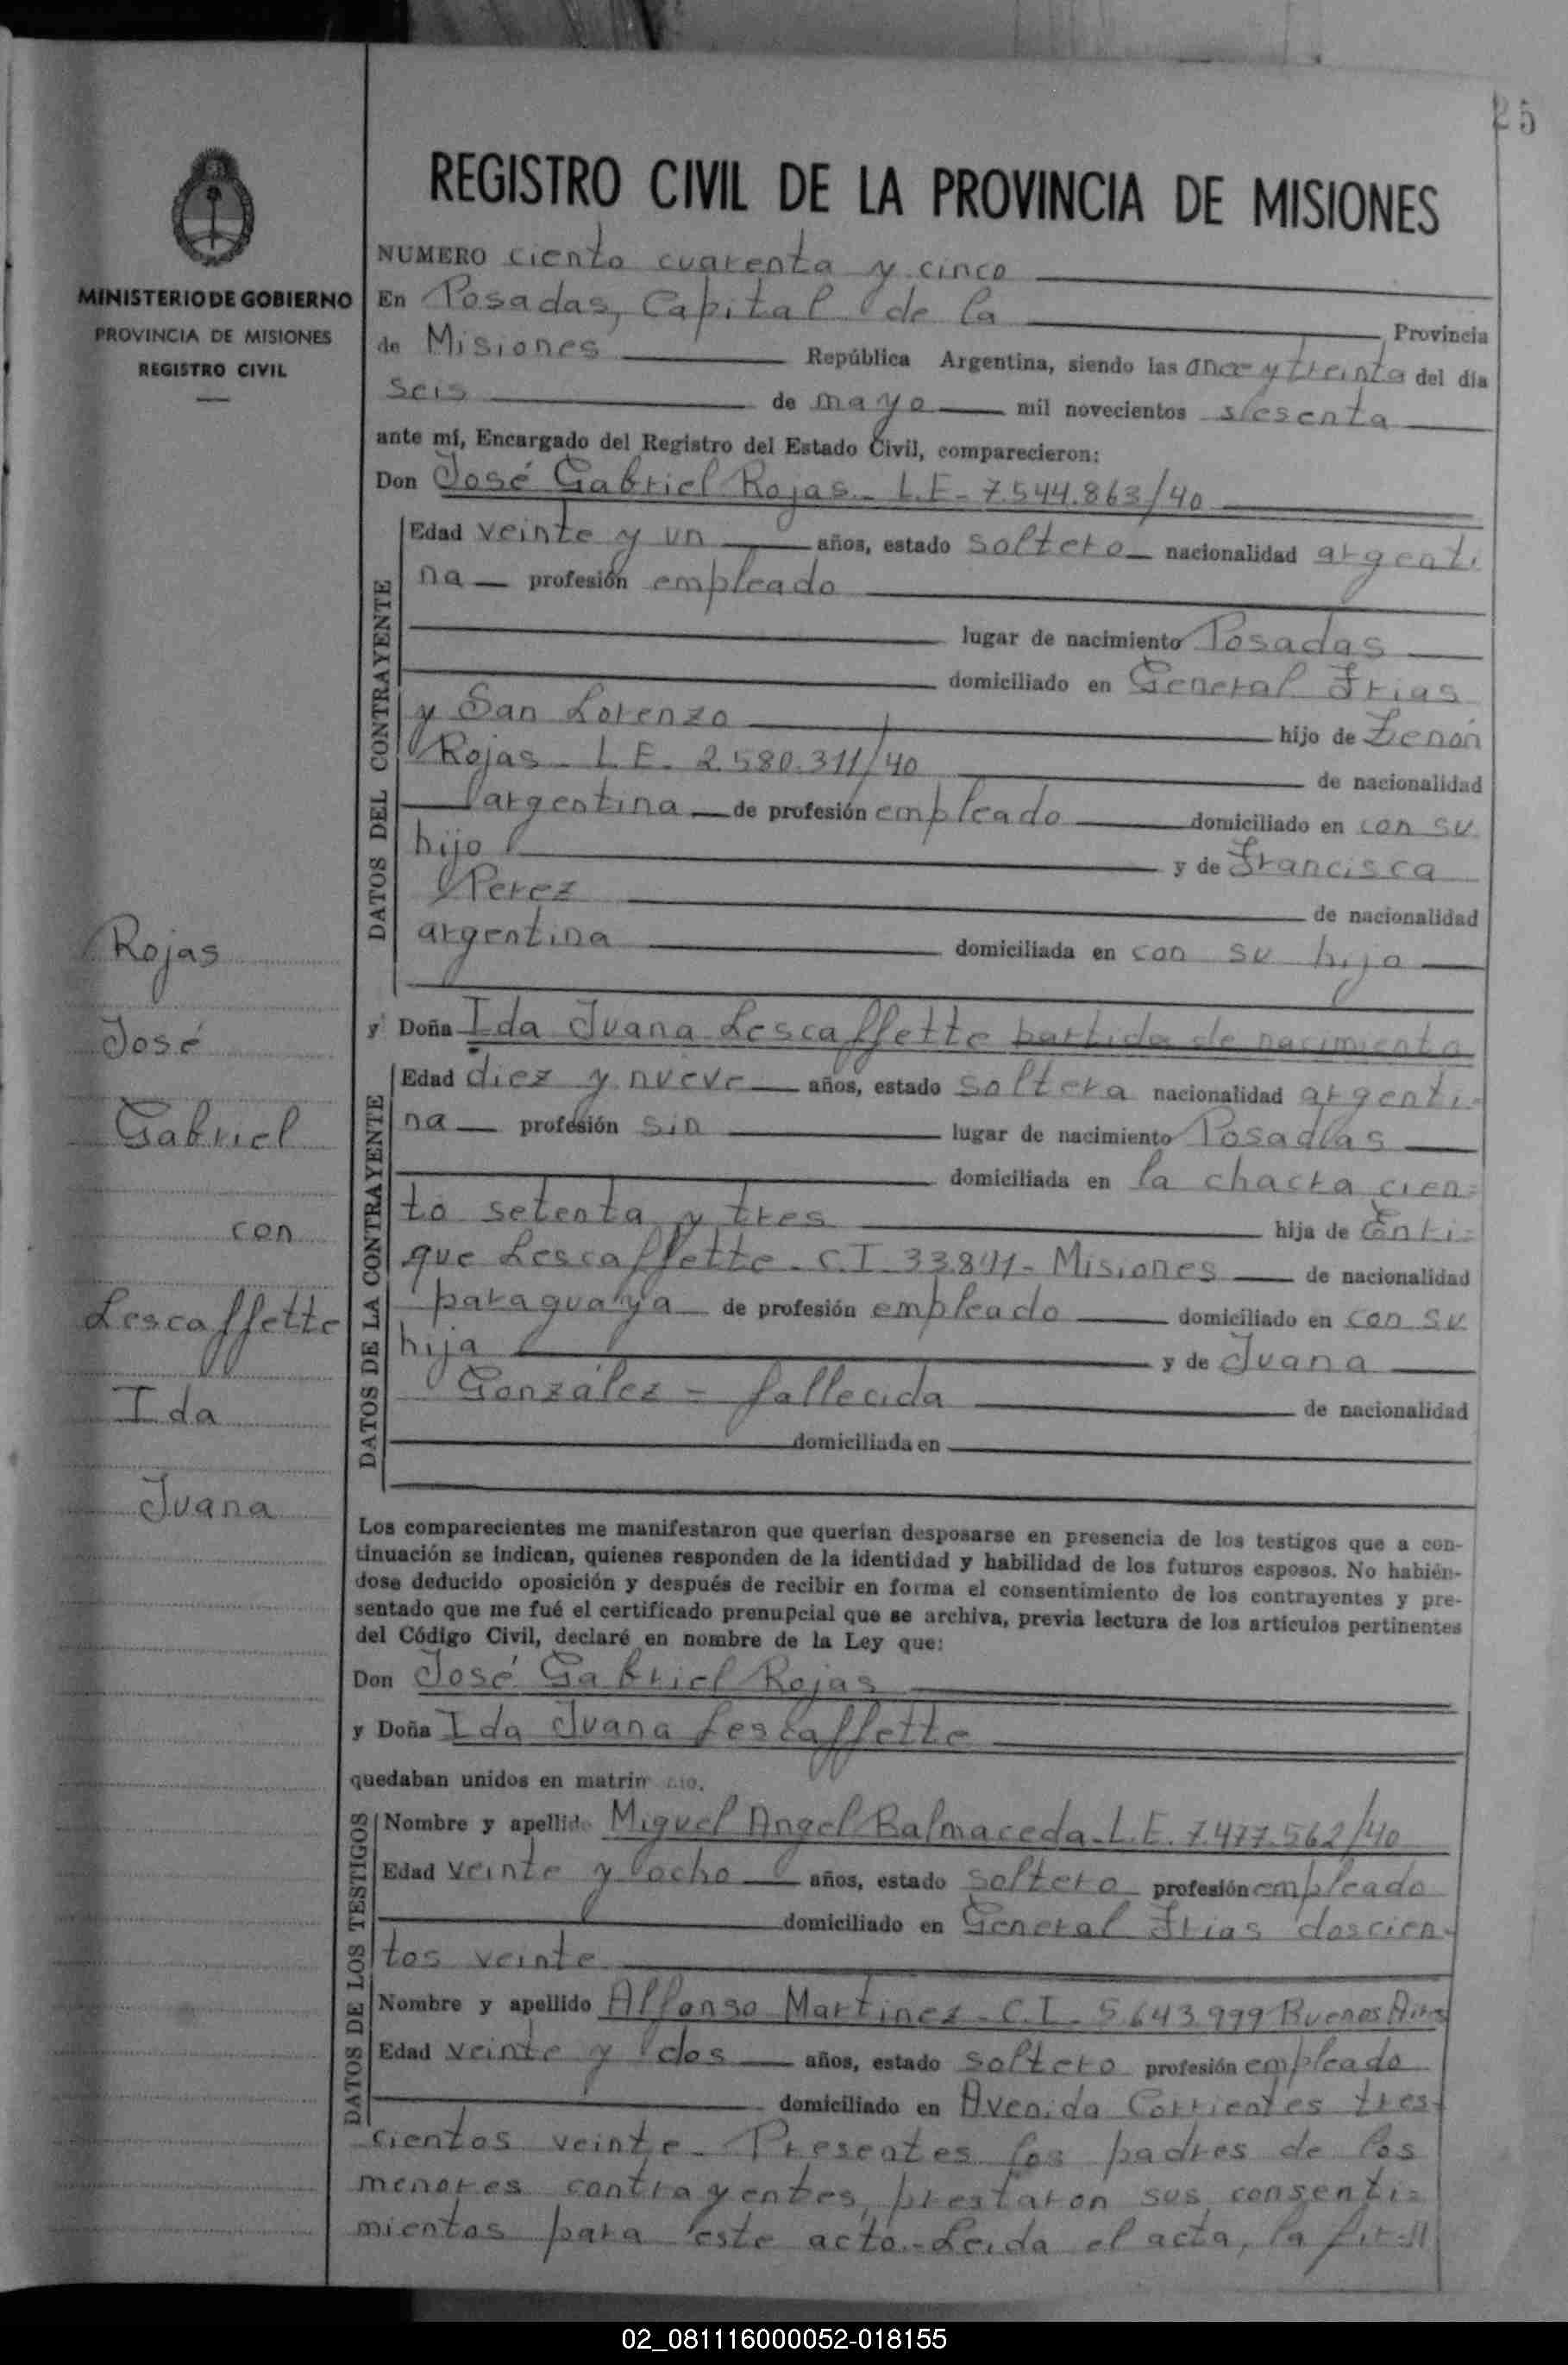 25
MINISTERIO DE GOBIERNO
PROVINCIA DE MISIONES
REGISTRO CIVIL
Rojas
José
Gabriel
con
Lescaffette
Ida
Juana
REGISTRO CIVIL DE LA PROVINCIA DE MISIONES
NUMERO ciento cuarenta y cinco
En Posadas, Capital de la Provincia
de Misiones República Argentina, siendo las once y treinta del día
seis de mayo mil novecientos sesenta
ante mí, Encargado del Registro del Estado Civil, comparecieron:
Don José Gabriel Rojas - L.E - 7.544.863/40
DATOS DEL CONTRAYENTE
Edad veinte y un años, estado soltero nacionalidad argenti
na profesión empleado
lugar de nacimiento Posadas
domiciliado en General Frias
y San Lorenzo hijo de Zenón
Rojas - L.E. 2.580.311/40 de nacionalidad
argentina de profesión empleado domiciliado en con su
hijo y de Francisca
Perez de nacionalidad
argentina domiciliada en con su hijo
y Doña Ida Juana Lescaffette partida de nacimiento
DATOS DE LA CONTRAYENTE
Edad diez y nueve años, estado soltera nacionalidad argenti-
na profesión sin lugar de nacimiento Posadas
domiciliada en la chacra cien=
to setenta y tres hija de Enri=
que Lescaffette - C.I. - Misiones de nacionalidad
paraguaya de profesión empleado domiciliado en con su
hija y de Juana
González = fallecida de nacionalidad
domiciliada en
Los comparecientes me manifestaron que querían desposarse en presencia de los testigos que a con-
tinuación se indican, quienes responden de la identidad y habilidad de los futuros esposos. No habién-
dose deducido oposición y después de recibir en forma el consentimiento de los contrayentes y pre-
sentado que me fué el certificado prenupcial que se archiva, previa lectura de los artículos pertinentes
del Código Civil, declaré en nombre de la Ley que:
Don José Gabriel Rojas
y Doña Ida Juana Lescaffette
quedaban unidos en matrimonio.
DATOS DE LOS TESTIGOS
Nombre y apellido Miguel Angel Balmaceda - L.E. 7.477.562/40
Edad veinte y ocho años, estado soltero profesión empleado
domiciliado en General Frias doscien-
tos veinte
Nombre y apellido Alfonso Martinez - C.I - 5.643.999 Buenos Aires
Edad veinte y dos años, estado soltero profesión empleado
domiciliado en Avenida Corrientes tres-
cientos veinte - Presentes los padres de los
menores contrayentes, prestaron sus consenti=
mientos para este acto.- Leida el acta, la fir=//
02_081116000052-018155